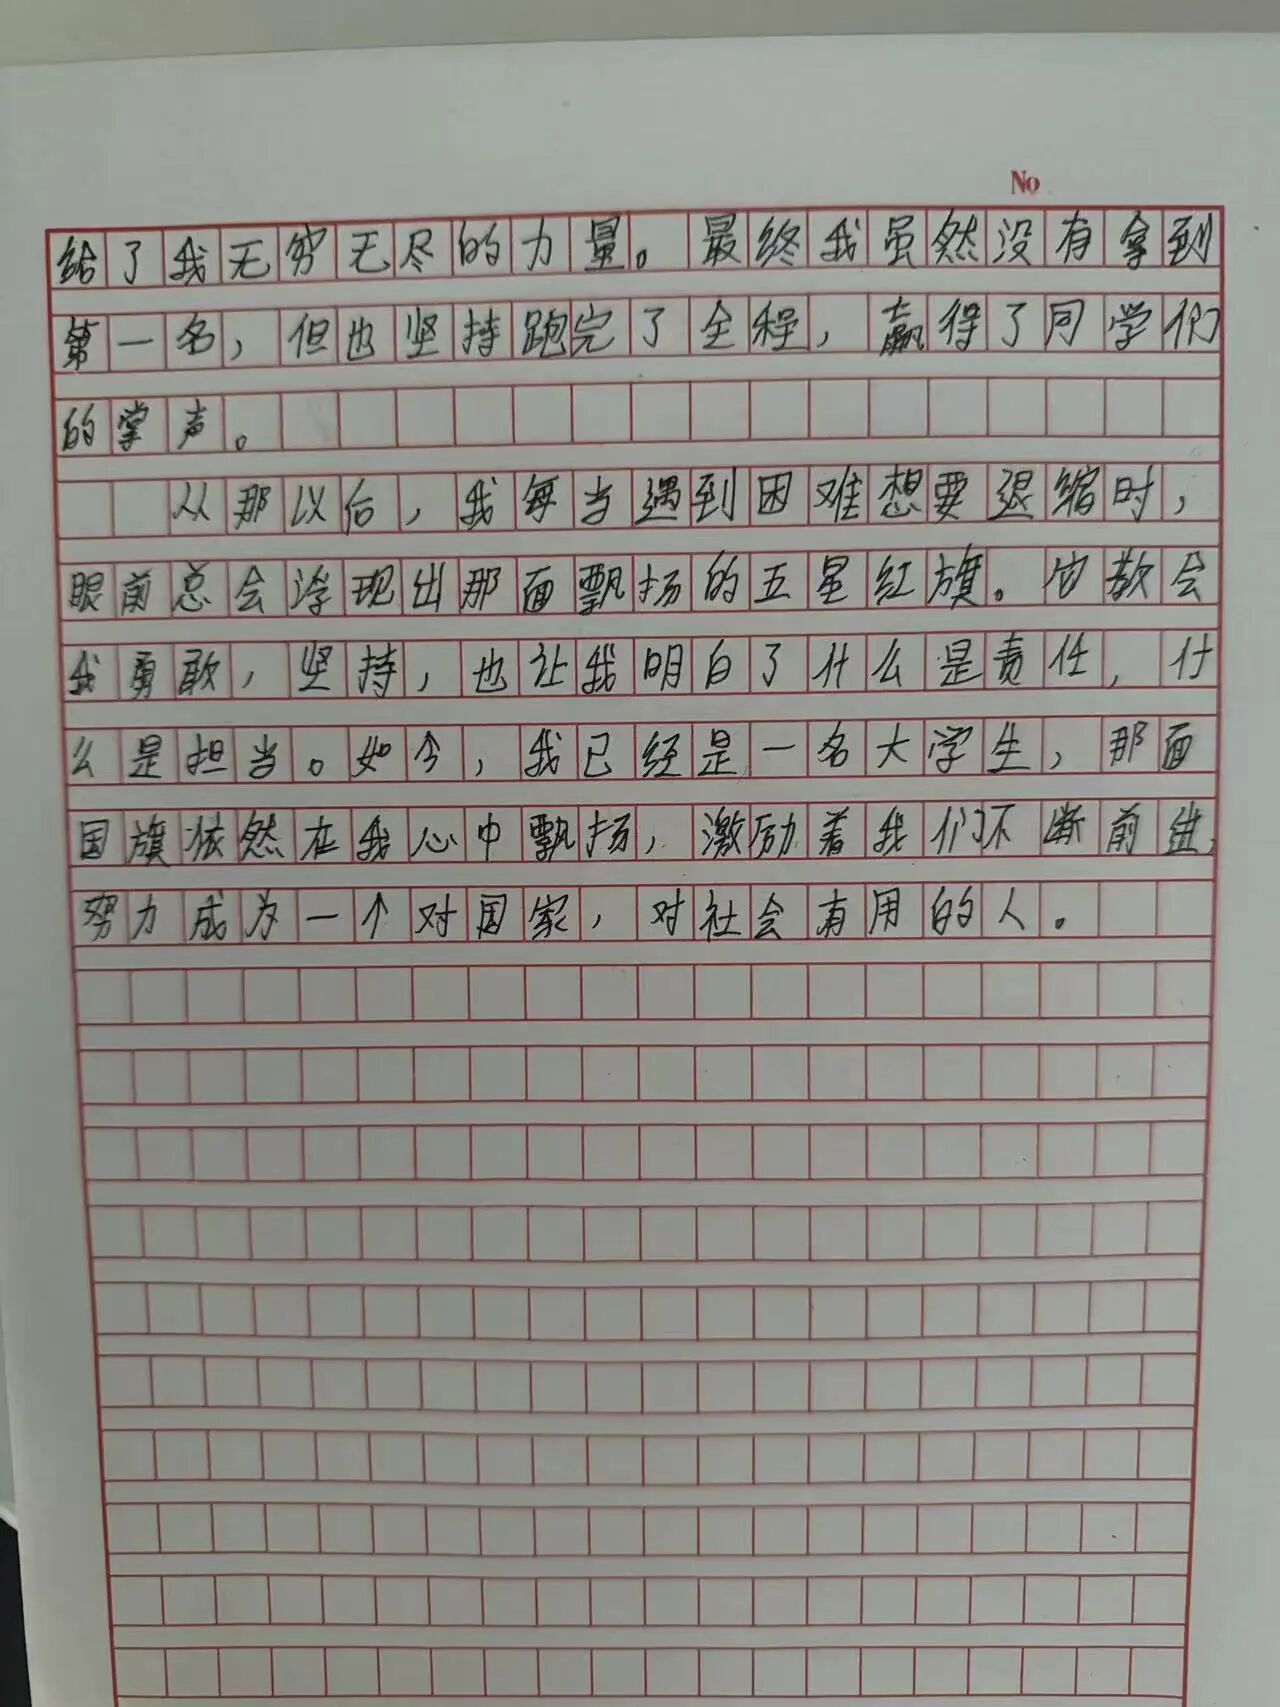 No
给了我无穷无尽的力量。最终我虽然没有拿到
第一名，但也坚持跑完了全程，赢得了同学们
的掌声。
从那以后，我每当遇到困难想要退缩时，
眼前总会浮现出那面飘扬的五星红旗。它教会
我勇敢，坚持，也让我明白了什么是责任，什
么是担当。如今，我已经是一名大学生，那面
国旗依然在我心中飘扬，激励着我们不断前进，
努力成为一个对国家，对社会有用的人。